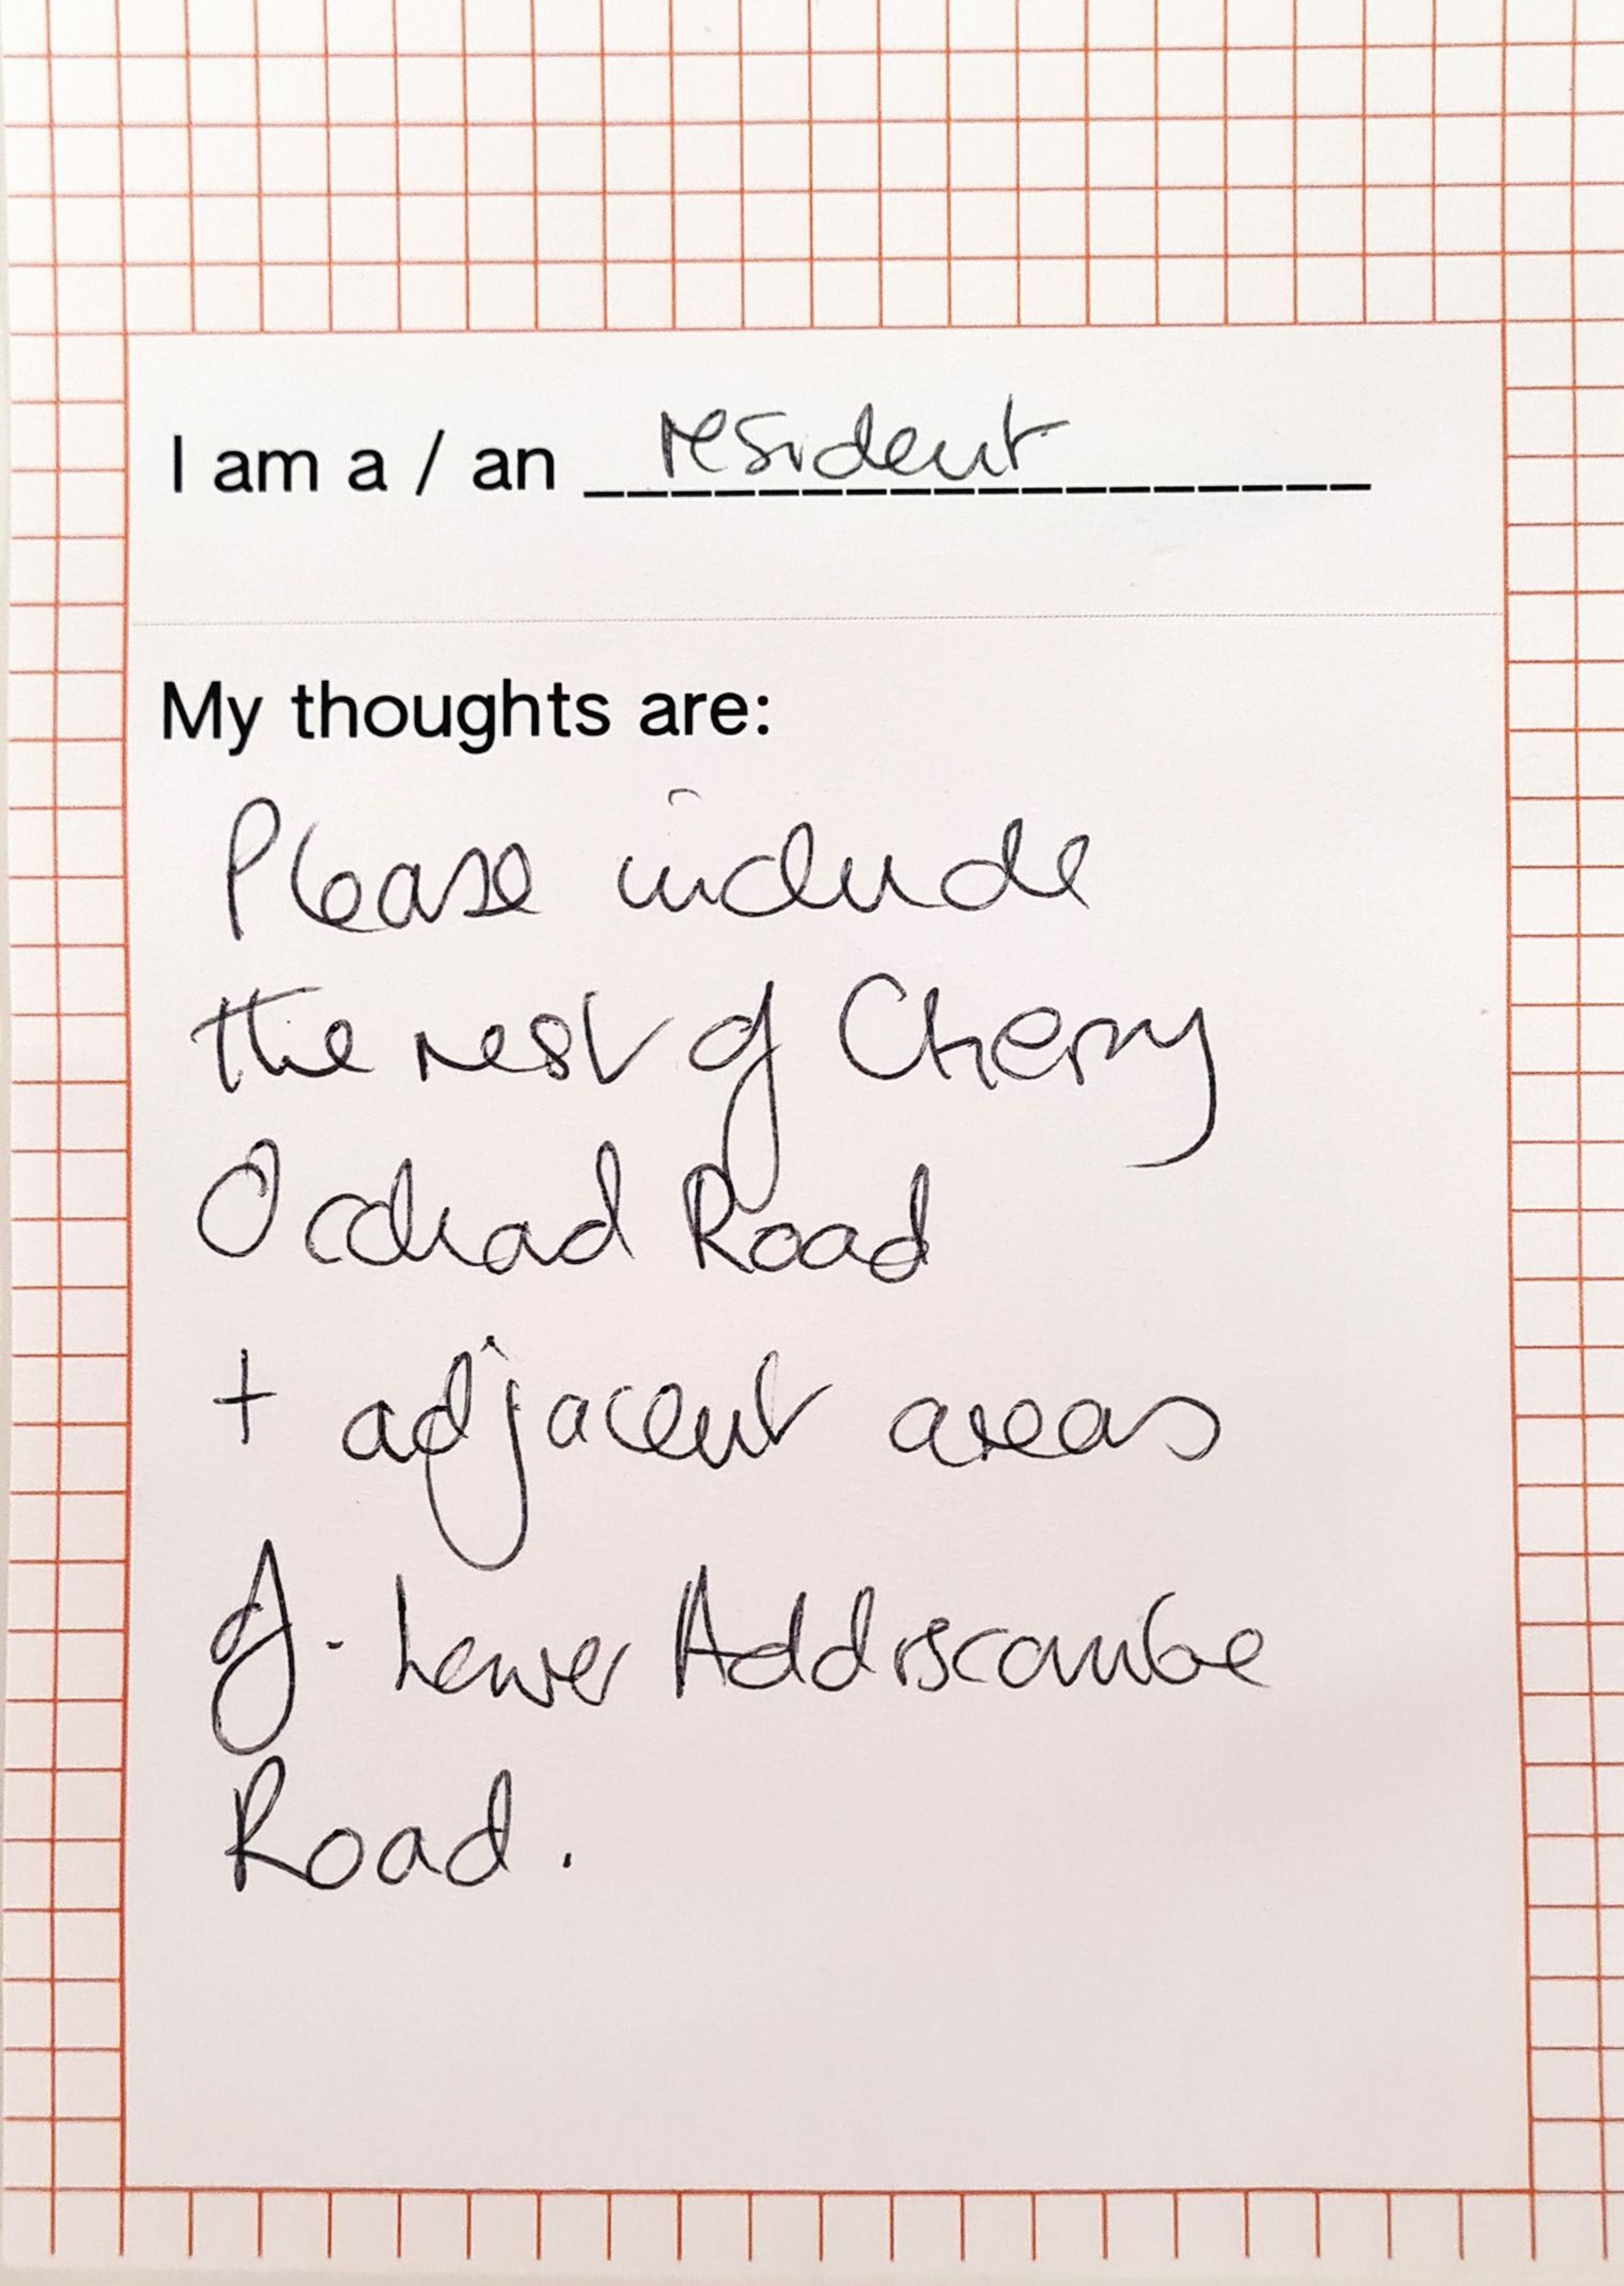 I am a / an resident
My thoughts are:
Please include
the rest of Cherry
Orchad Road
+ adjacent areas
of - Lower Addiscombe
Road.